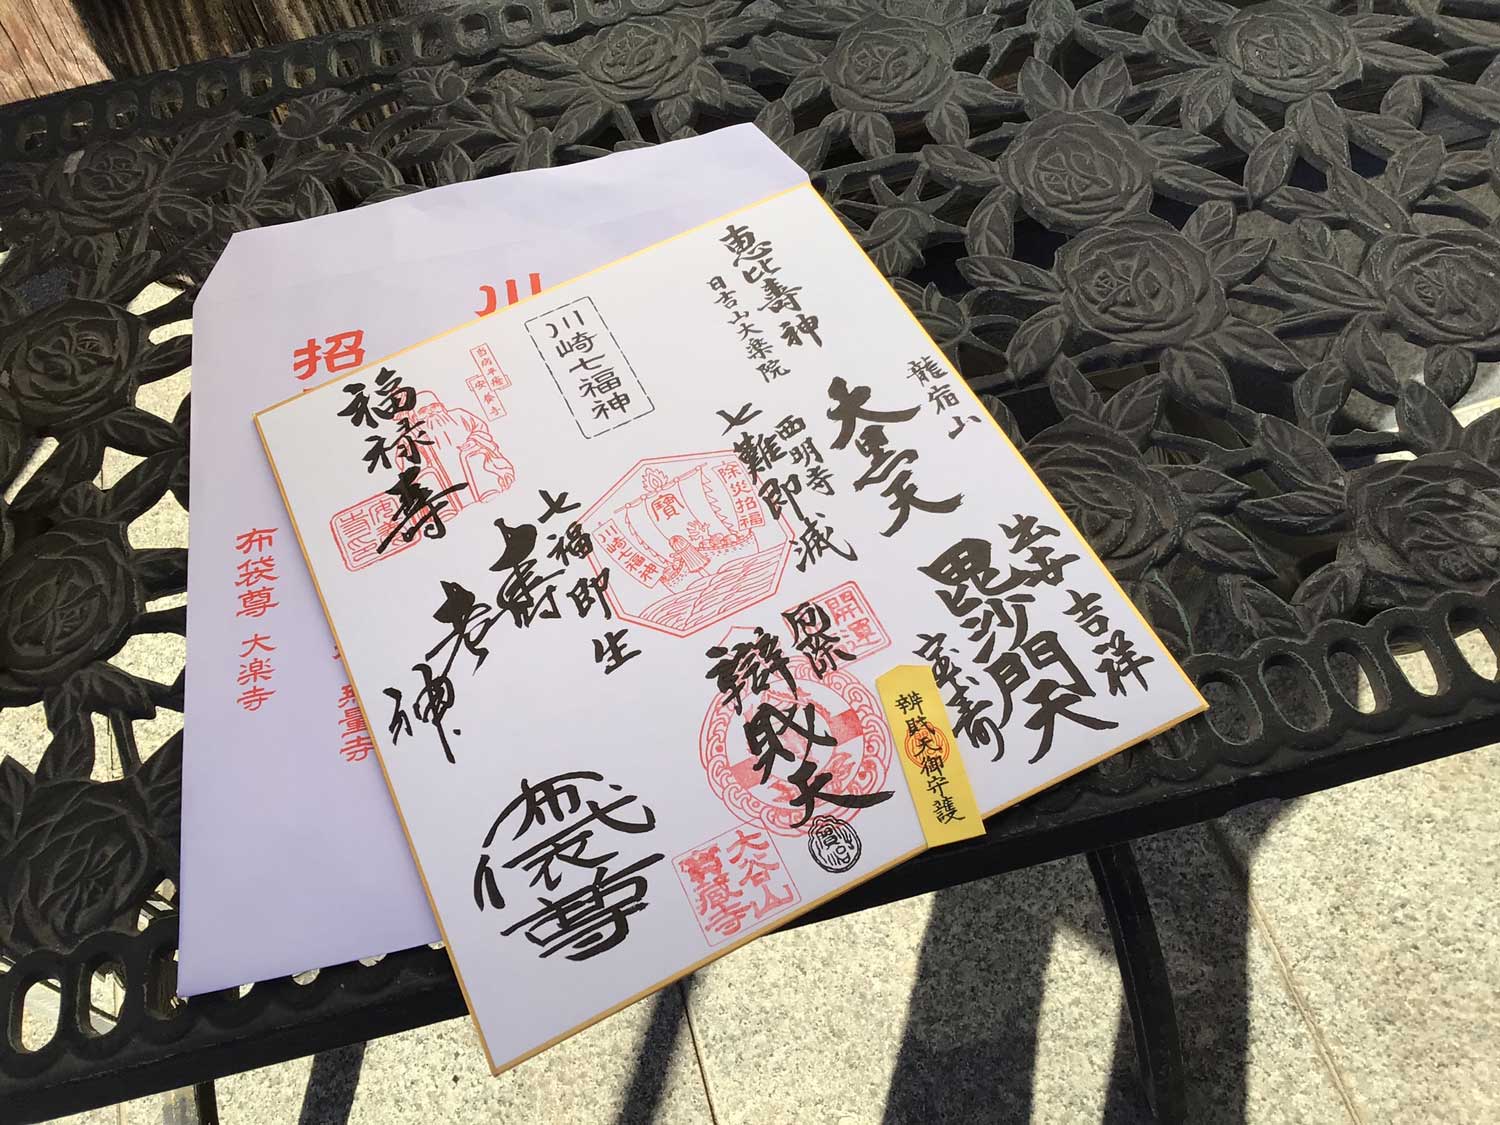 恵比寿神
日吉山大楽院
龍宿山
西明寺
大黒天
七難即滅
吉祥
毘沙門天
川崎七福神
除災招福
寶
川崎七福神
七福即生
開運
辯財天
辨財天御守護
福禄寿
寿老神
布袋尊
大谷山
寳蔵寺
川
招
布袋尊 大楽寺
無量寺